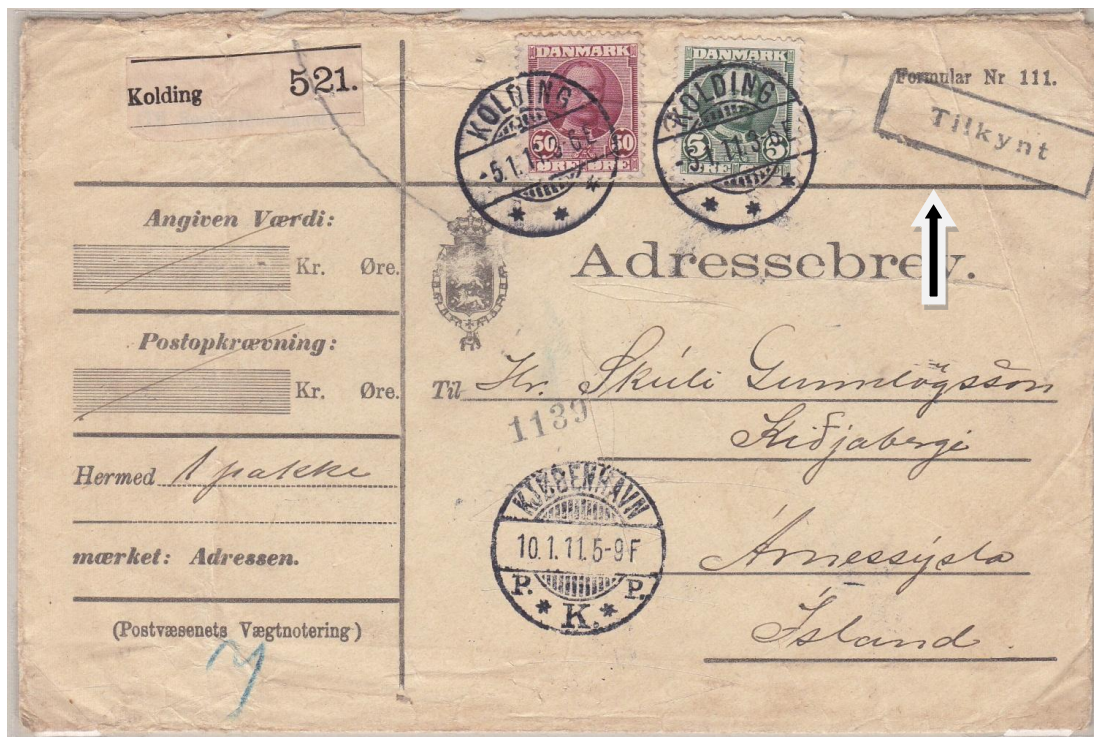 Kolding 521.
DANMARK
50 50
ØRE ØRE
KOLDING
-5.1.11.3-6E
DANMARK
5 5
ØRE ØRE
KOLDING
-5.1.11.3-6E
Formular Nr 111.
Tilkynt
Angiven Værdi:
Kr. Øre.
Postopkrævning:
Kr. Øre.
Hermed 1 pakke
mærket: Adressen.
(Postvæsenets Vægtnotering)
Adressebrev.
Til Hr. Skúli Gunnlögsson
1139
Kiðjabergi
Árnessýslu
Ísland.
KJØBENHAVN
10.1.11.5-9F
P. K. P.